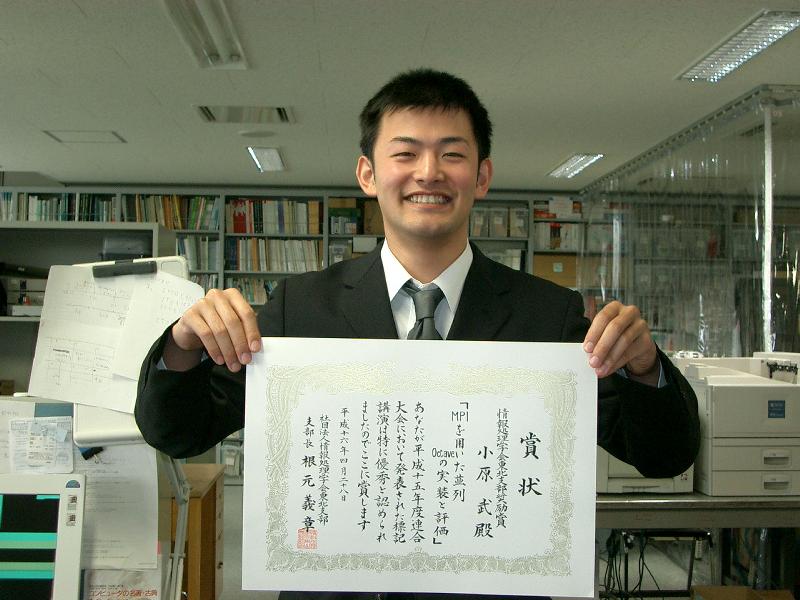 賞状
情報処理学会東北支部奨励賞
小原 武 殿
「MPIを用いた並列
Octaveの実装と評価」
あなたが平成十五年度連合
大会において発表された標記
講演は特に優秀と認められ
ましたのでここに賞します
平成十六年四月二十八日
社団法人情報処理学会東北支部
支部長 根元義章
コンピュータの名著・古典